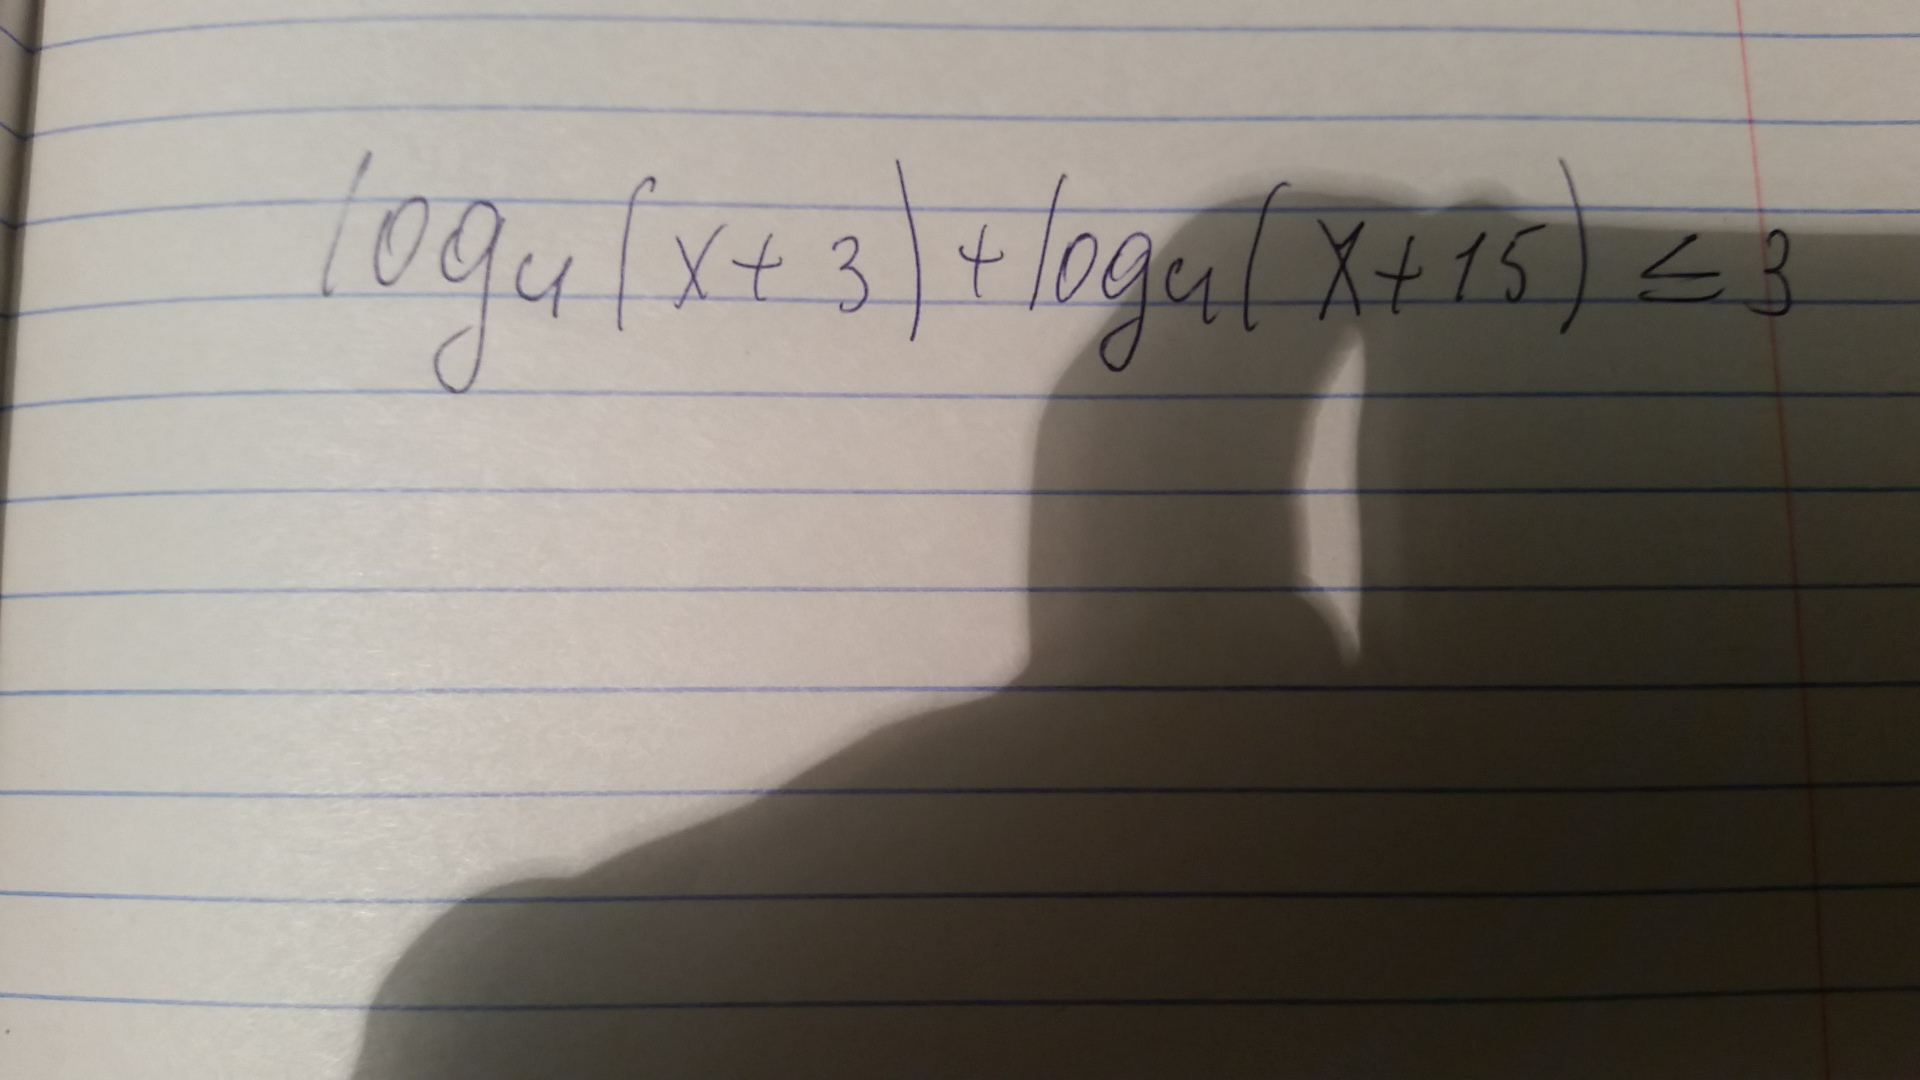 log₄(x+3)+log₄(x+15)≤3